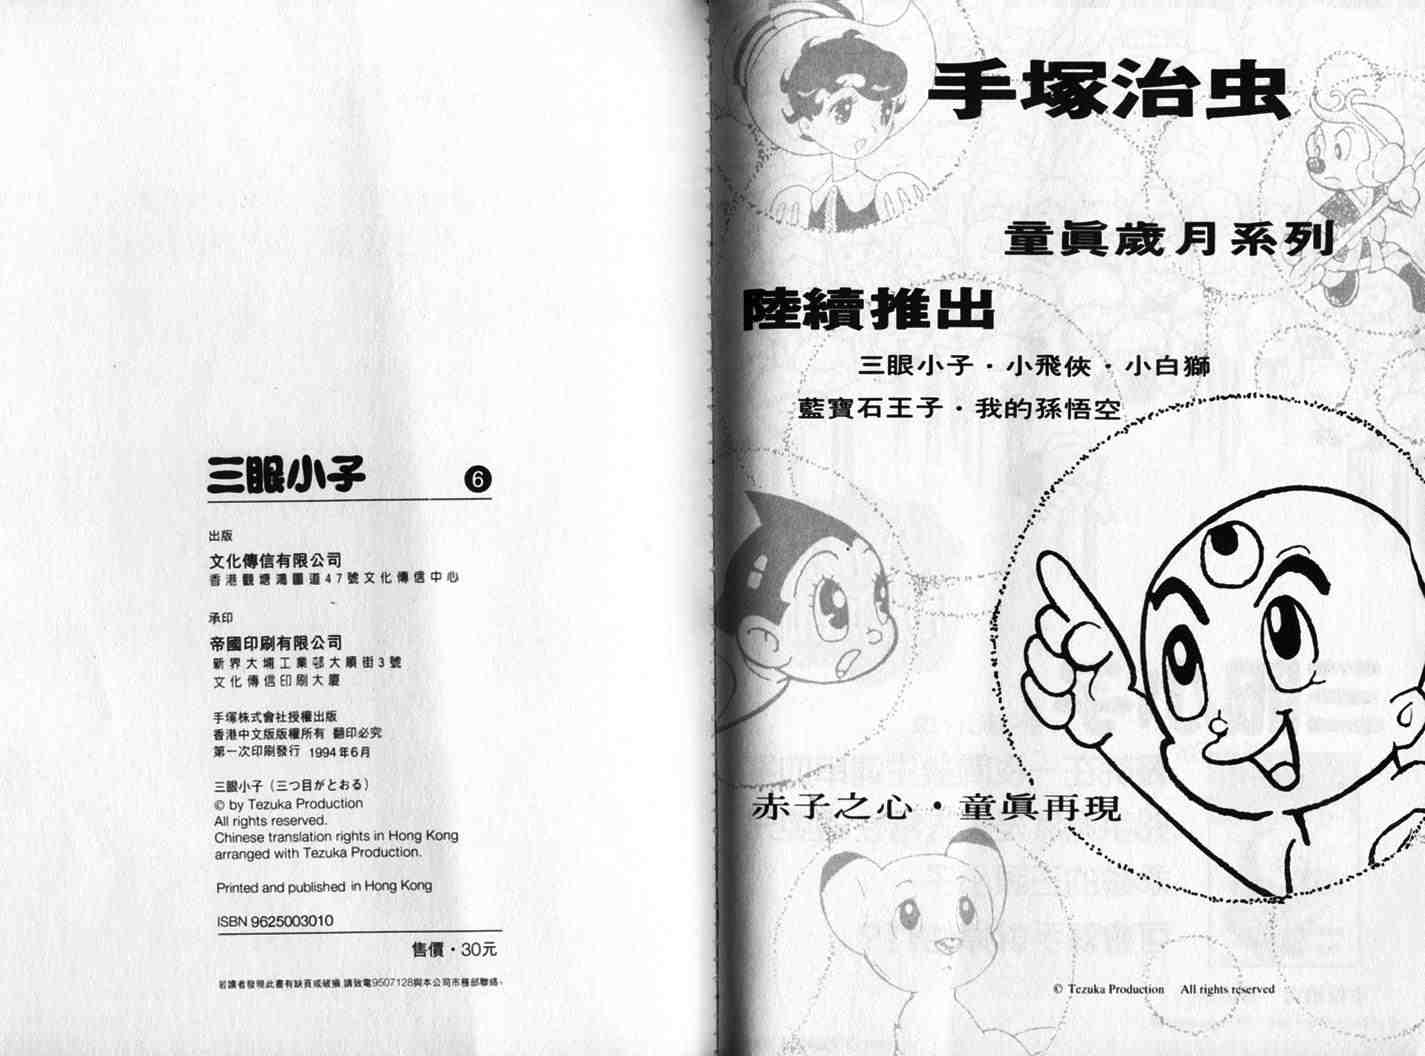 三眼小子 6
出版
文化傳信有限公司
香港觀塘鴻圖道47號文化傳信中心
承印
帝國印刷有限公司
新界大埔工業邨大順街3號
文化傳信印刷大廈
手塚株式會社授權出版
香港中文版版權所有 翻印必究
第一次印刷發行 1994年6月
三眼小子（三つ目がとおる）
© by Tezuka Production
All rights reserved.
Chinese translation rights in Hong Kong
arranged with Tezuka Production.
Printed and published in Hong Kong
ISBN 9625003010
售價・30元
若讀者發現此書有缺頁或破損,請致電9507128與本公司市務部聯絡。
手塚治虫
童眞歲月系列
陸續推出
三眼小子・小飛俠・小白獅
藍寶石王子・我的孫悟空
赤子之心・童眞再現
© Tezuka Production All rights reserved